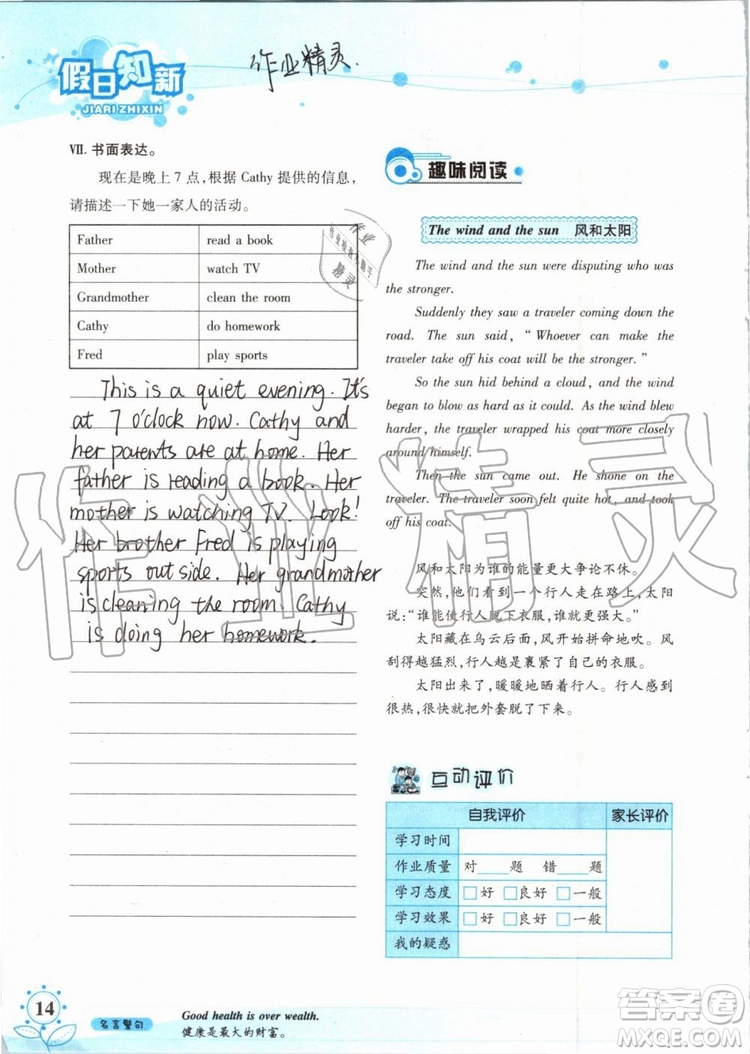 假日知新
JIARI ZHIXIN
作业精灵.
VII. 书面表达。
现在是晚上 7 点,根据 Cathy 提供的信息,
请描述一下她一家人的活动。
Father read a book
Mother watch TV
Grandmother clean the room
Cathy do homework
Fred play sports
This is a quiet evening. It's
at 7 o'clock now. Cathy and
her parents are at home. Her
father is reading a book. Her
mother is watching TV. Look!
Her brother Fred is playing
sports outside. Her grandmother
is cleaning the room. Cathy
is doing her homework.
趣味阅读
The wind and the sun 风和太阳
The wind and the sun were disputing who was
the stronger.
Suddenly they saw a traveler coming down the
road. The sun said, “Whoever can make the
traveler take off his coat will be the stronger.”
So the sun hid behind a cloud, and the wind
began to blow as hard as it could. As the wind blew
harder, the traveler wrapped his coat more closely
around himself.
Then the sun came out. He shone on the
traveler. The traveler soon felt quite hot, and took
off his coat.
风和太阳为谁的能量更大争论不休。
突然,他们看到一个行人走在路上,太阳
说:“谁能使行人脱下衣服,谁就更强大。”
太阳藏在乌云后面,风开始拼命地吹。风
刮得越猛烈,行人越是裹紧了自己的衣服。
太阳出来了,暖暖地晒着行人。行人感到
很热,很快就把外套脱了下来。
互动评价
自我评价 家长评价
学习时间
作业质量 对____题 错____题
学习态度 □好 □良好 □一般
学习效果 □好 □良好 □一般
我的疑惑
作业精灵
14
名言警句
Good health is over wealth.
健康是最大的财富。
答案圈
MXQE.COM